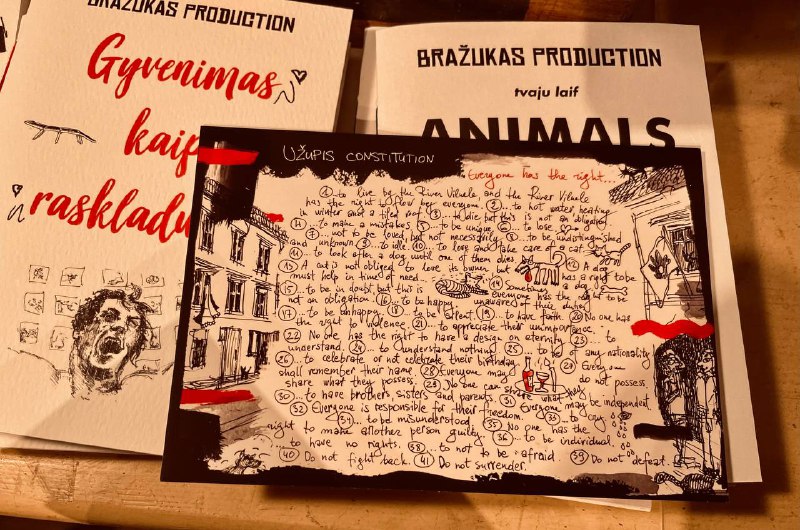 BRAŽUKAS PRODUCTION
Gyvenimas
kaip
raskladu
BRAŽUKAS PRODUCTION
tvaju laif
ANIMALS
UŽUPIS CONSTITUTION
Everyone has the right...
① ...to live by the River Vilnele, and the River Vilnele
has the right to flow by everyone. ② ...to hot water, heating
in winter and a tiled roof. ③ ...to die, but this is not an obligation.
④ ...to make a mistakes. ⑤ ...to be unique. ⑥ ...to love.
⑦ ...not to be loved, but not necessarily. ⑧ ...to be undistinguished
and unknown. ⑨ ...to idle. ⑩ ...to love and take care of a cat.
⑪ ...to look after a dog until one of them dies. ⑫ A dog
has a right to be a dog.
⑬ A cat is not obliged to love its owner but
must help in time of need. ⑭ Sometimes
⑮ ...to be in doubt, but this is everyone has the right to be
not an obligation. ⑯ ...to be happy. unaware of their duties.
⑰ ...to be unhappy. ⑱ ...to be silent. ⑲ ...to have faith. ⑳ No one has
the right to violence. ㉑ ...to appreciate their unimportance.
㉒ No one has the right to have a design on eternity. ㉓ ...to
understand. ㉔ ...to understand nothing. ㉕ ...to be of any nationality.
㉖ ...to celebrate or not celebrate their birthday. ㉗ Everyone
shall remember their name. ㉘ Everyone may
share what they possess. ㉙ No one can share what they do not possess.
㉚ ...to have brothers, sisters and parents. ㉛ Everyone may be independent.
㉜ Everyone is responsible for their freedom. ㉝ ...to cry.
㉞ ...to be misunderstood. ㉟ No one has the
right to make another person guilty. ㊱ ...to be individual.
...to have no rights. ㊳ ...to not to be afraid. ㊴ Do not defeat.
㊵ Do not fight back. ㊶ Do not surrender.